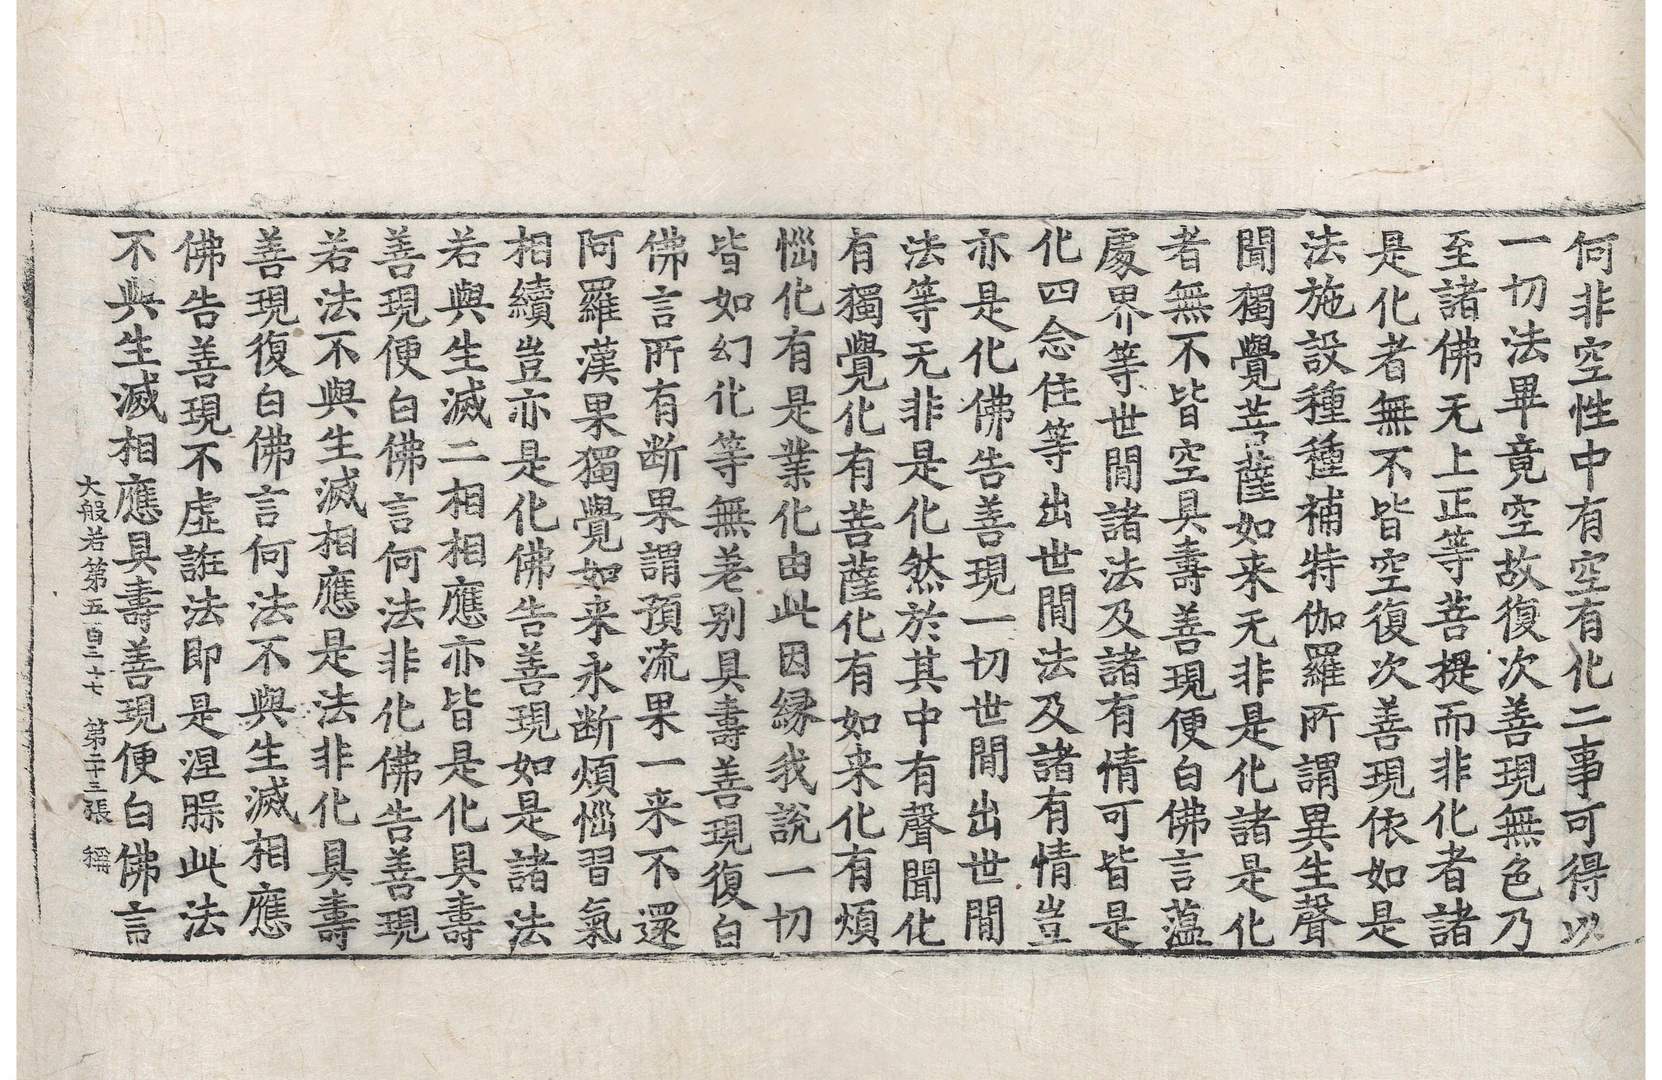 何非空性中有空有化二事可得以
一切法畢竟空故復次善現無色乃
至諸佛无上正等菩提而非化者諸
是化者無不皆空復次善現依如是
法施設種種補特伽羅所謂異生聲
聞獨覺菩薩如来无非是化諸是化
者無不皆空具壽善現便白佛言蕰
處界等世閒諸法及諸有情可皆是
化四念住等出世閒法及諸有情豈
亦是化佛告善現一切世閒出世閒
法等无非是化然於其中有聲聞化
有獨覺化有菩薩化有如来化有煩
惱化有是業化由此因縁我說一切
皆如幻化等無差别具壽善現復白
佛言所有断果謂預流果一来不還
阿羅漢果獨覺如来永断煩惱習氣
相續豈亦是化佛告善現如是諸法
若與生滅二相相應亦皆是化具壽
善現便白佛言何法非化佛告善現
若法不與生滅相應是法非化具壽
善現復白佛言何法不與生滅相應
佛告善現不虛誑法即是涅槃此法
不與生滅相應具壽善現便白佛言
大般若第五百三十七 第二十三張 稱